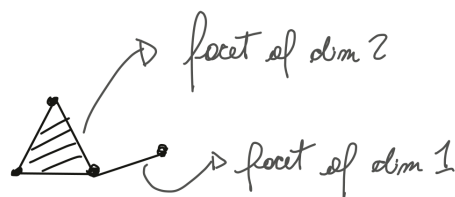 facet of dim 2
facet of dim 1